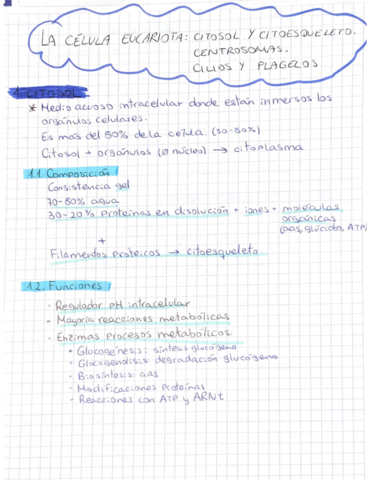 LA CÉLULA EUCARIOTA: CITOSOL Y CITOESQUELETO.
CENTROSOMAS.
CILIOS Y FLAGELOS
1. CITOSOL
* Medio acuoso intracelular donde están inmersos los
orgánulos celulares.
Es más del 50% de la célula. (50-80%)
Citosol + orgánulos (Ø núcleo) → citoplasma
1.1 Composición
Consistencia gel
70-80% agua
30-20% Proteínas en disolución + iones + moléculas
orgánicas
(aas, glúcidos, ATP)
+
Filamentos proteicos → citoesqueleto
1.2. Funciones
- Regulador pH intracelular
- Mayoría reacciones metabólicas
- Enzimas procesos metabólicos.
• Glucogénesis: síntesis glucógeno
• Glucogenolisis: degradación glucógeno
• Biosíntesis: aas
• Modificaciones Proteínas
• Reacciones con ATP y ARNt